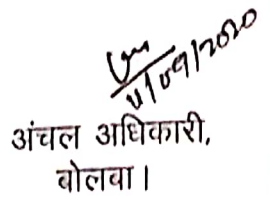 11/09/2020
अंचल अधिकारी,
बोलबा।